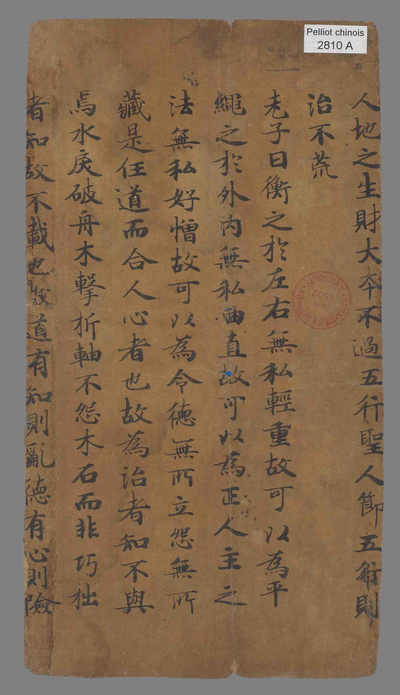 Pelliot chinois
2810 A
人地之生財大本不過五行聖人節五行則
治不荒
老子曰衡之於左右無私輕重故可以為平
繩之於外內無私曲直故可以為正人主之
法無私好憎故可以為令德無所立怨無所
藏是任道而合人心者也故為治者知不與
焉水戾破舟木擊折軸不怨木石而非巧拙
者知故不載也道有知則亂德有心則險